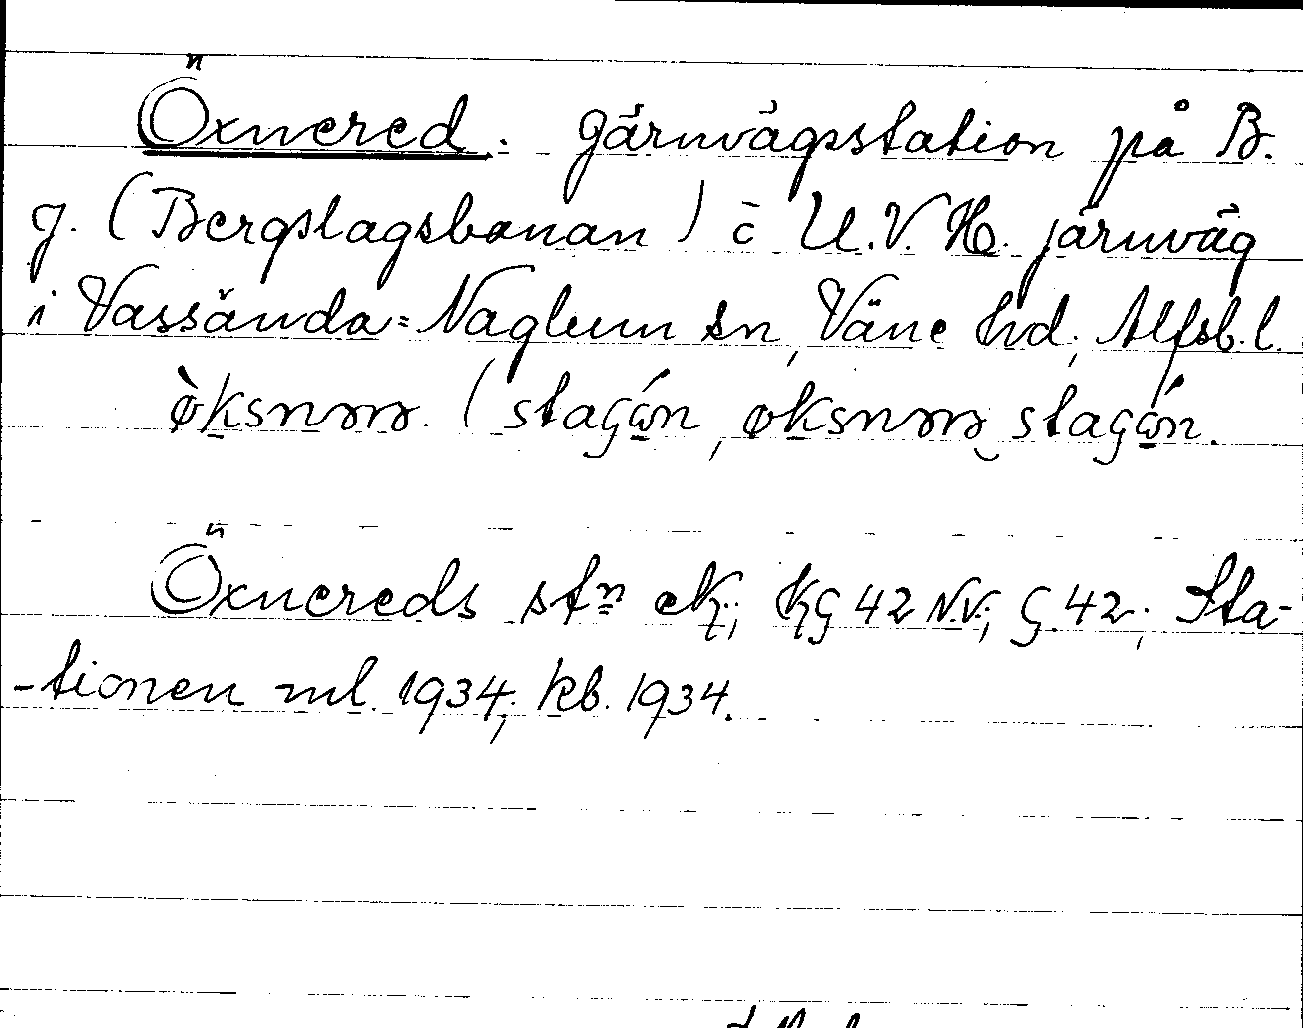 Öxnered. Järnvägsstation på B.
J. (Bergslagsbanan) o U.V.H. järnväg
i Vassända-Naglum sn, Väne hd, Älfsb. l.
Öxnereds stn ek.; kg 42 N.V.; G. 42; Sta-
-tionen ml. 1934; kb. 1934.